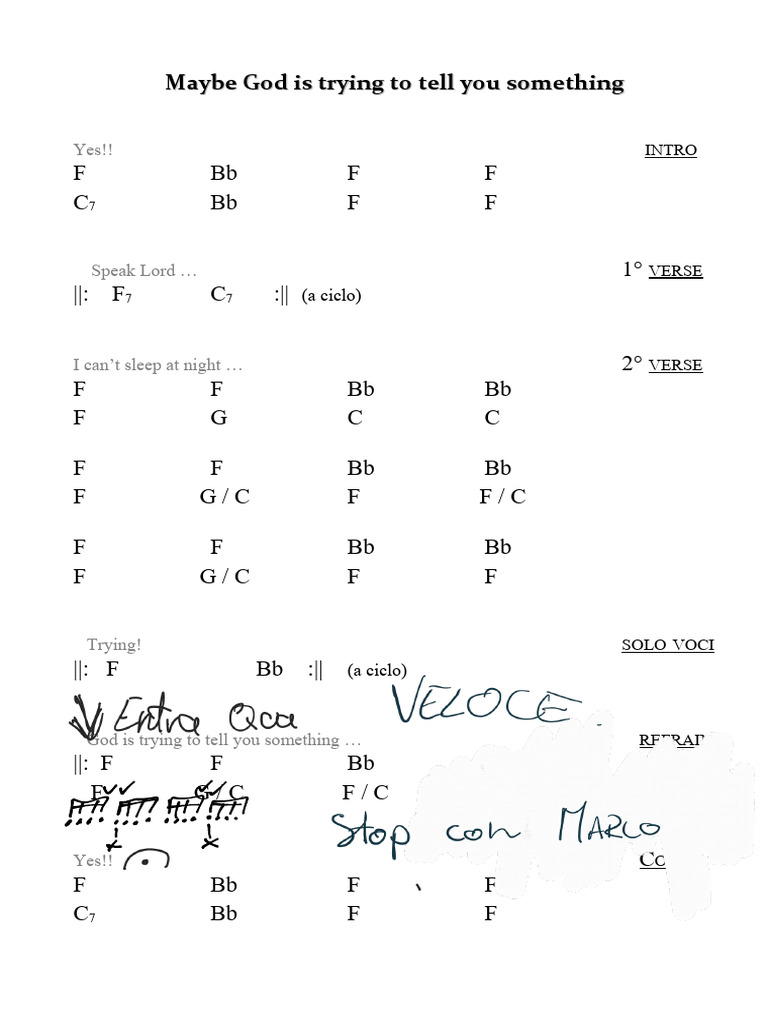 Maybe God is trying to tell you something
Yes!! INTRO
F Bb F F
C7 Bb F F
Speak Lord … 1° VERSE
||: F7 C7 :|| (a ciclo)
I can’t sleep at night … 2° VERSE
F F Bb Bb
F G C C
F F Bb Bb
F G / C F F / C
F F Bb Bb
F G / C F F
Trying! SOLO VOCI
||: F Bb :|| (a ciclo)
Entra Qua VELOCE
God is trying to tell you something …
||: F F Bb
F G / C F / C
Stop con MARCO
Yes!!
F Bb F F
C7 Bb F F